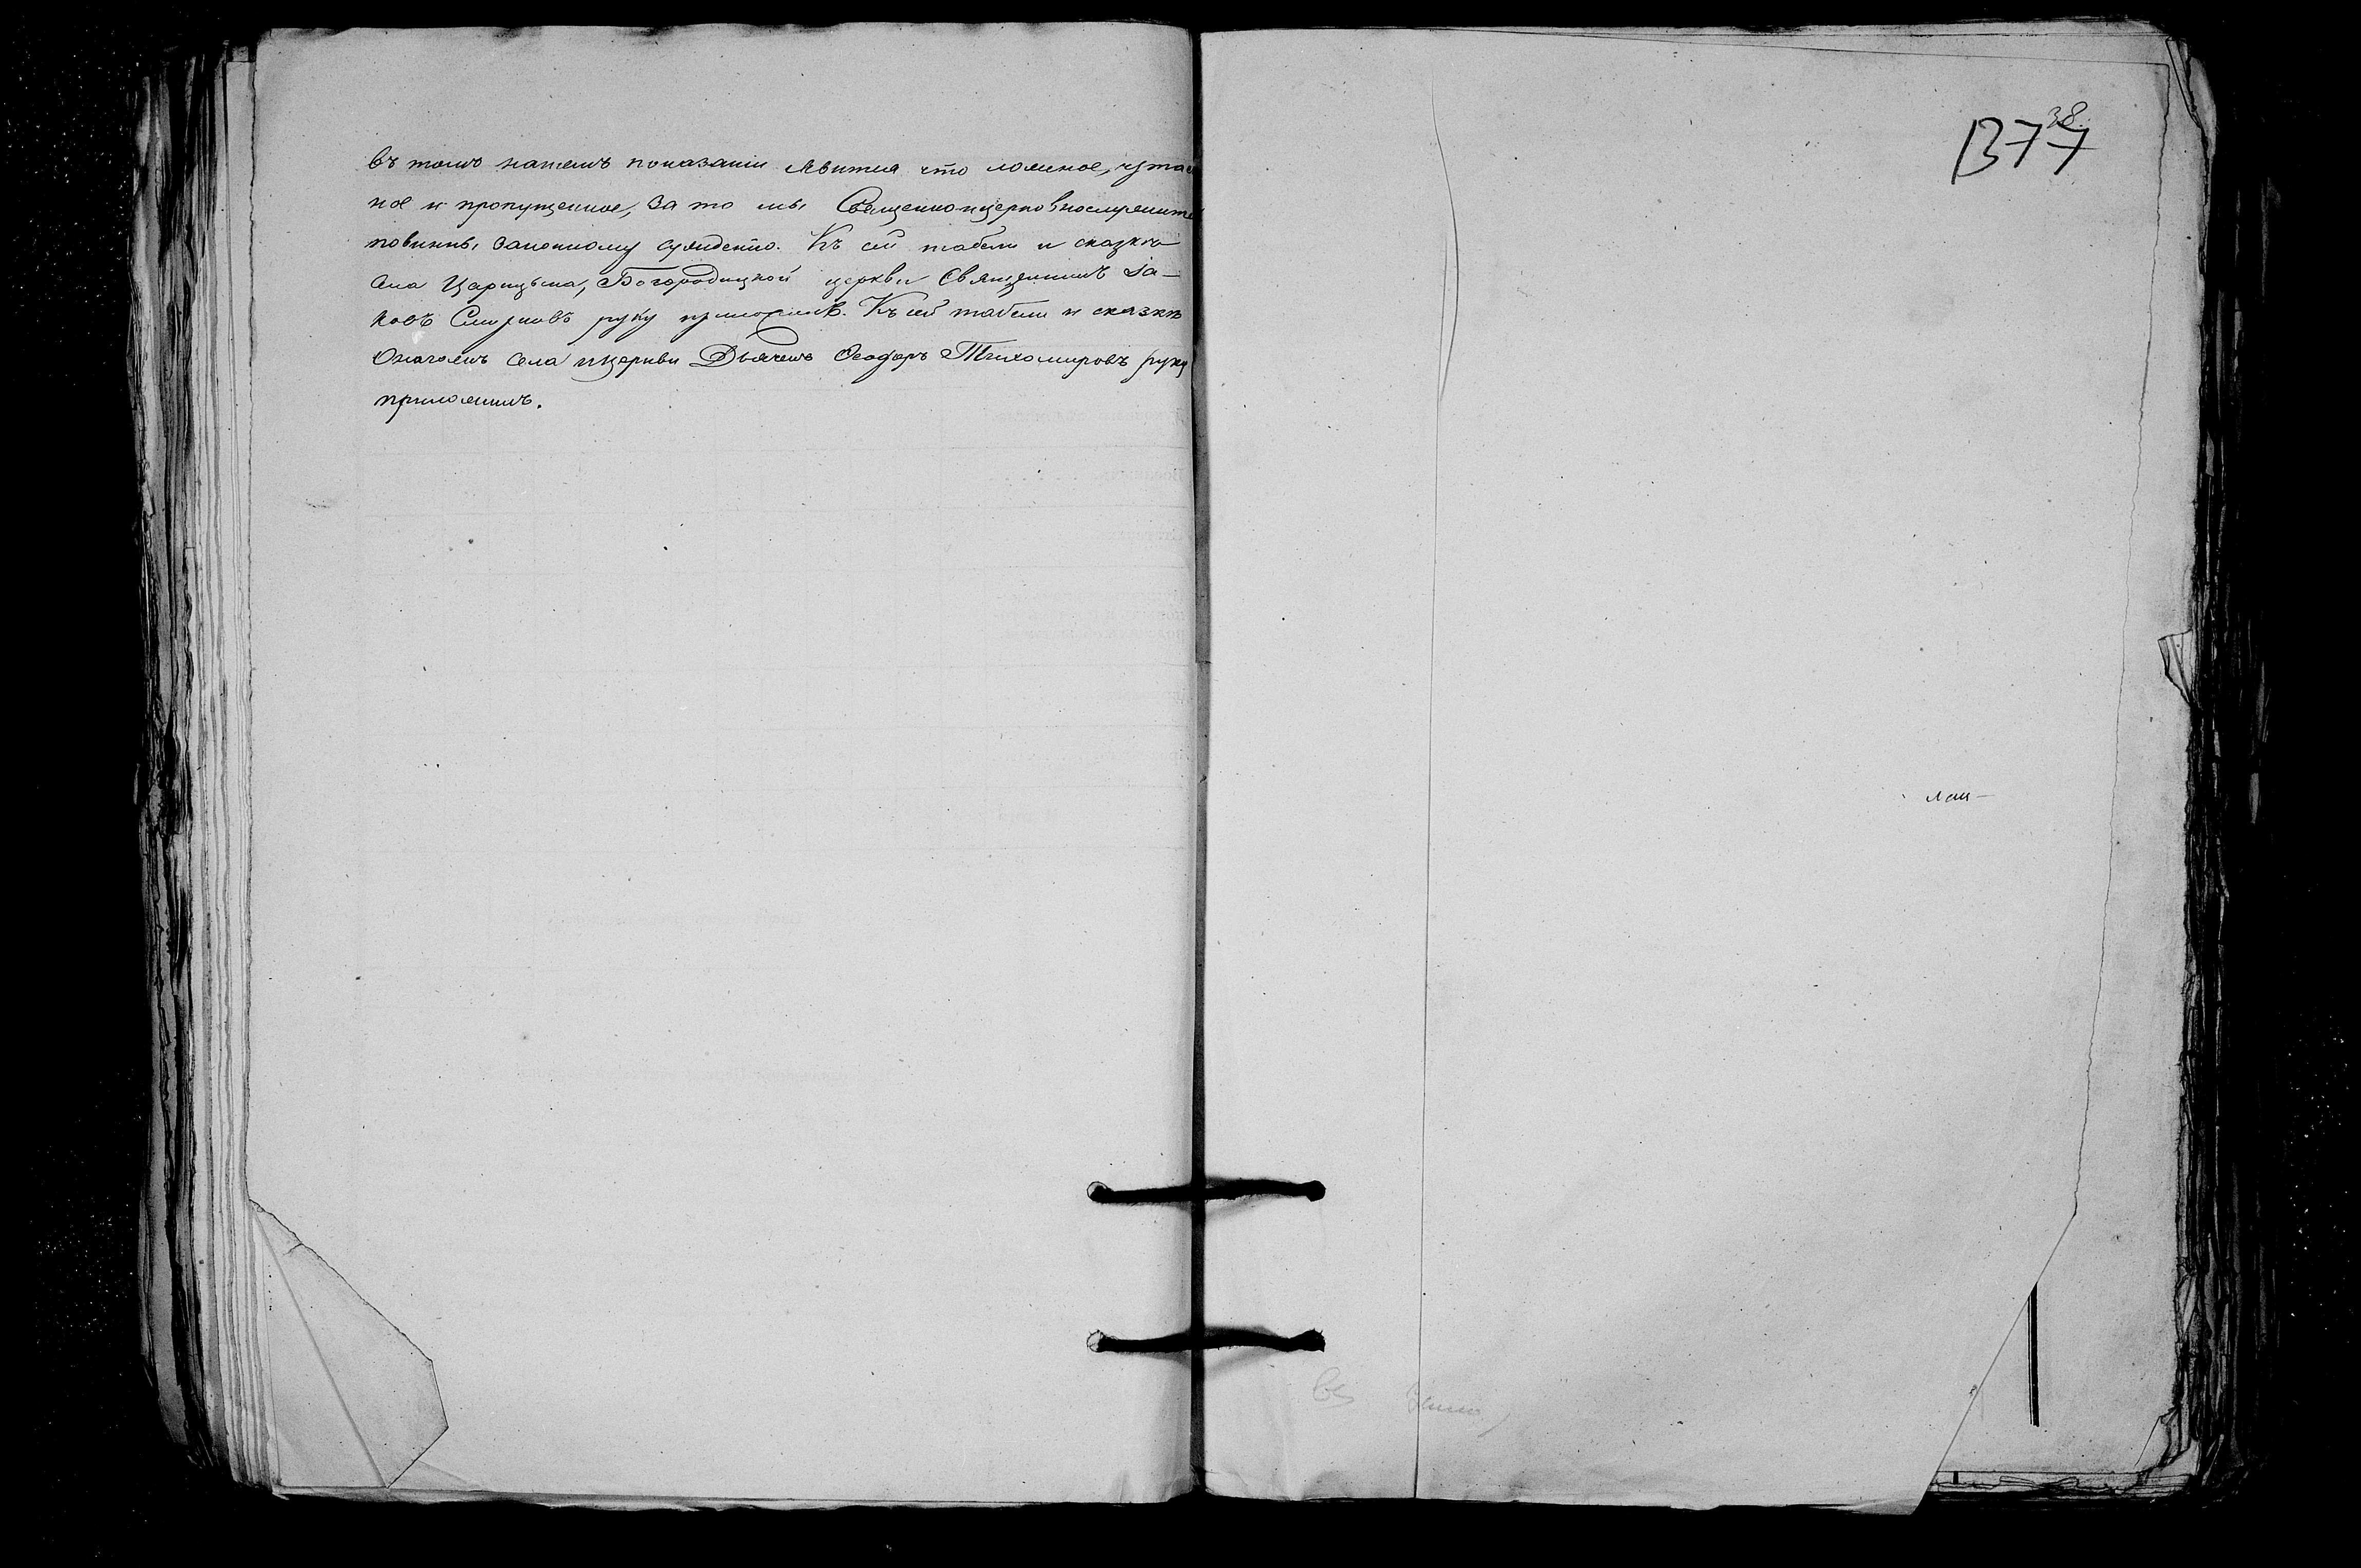 въ томъ нашемъ показаніи явится что ложное, утаен
ное и пропущенное, за то мы Священноицерковнослужители
повинны законному сужденію. Къ сей табели и сказкѣ
села Царицына, Богородицкой церкви Священникъ Іа-
ковъ Смирновъ руку приложилъ. Къ сей табели и сказкѣ
Означеннаго села и церкви Дьячекъ Ѳеодоръ Тихомировъ руку
приложилъ.
38
1377